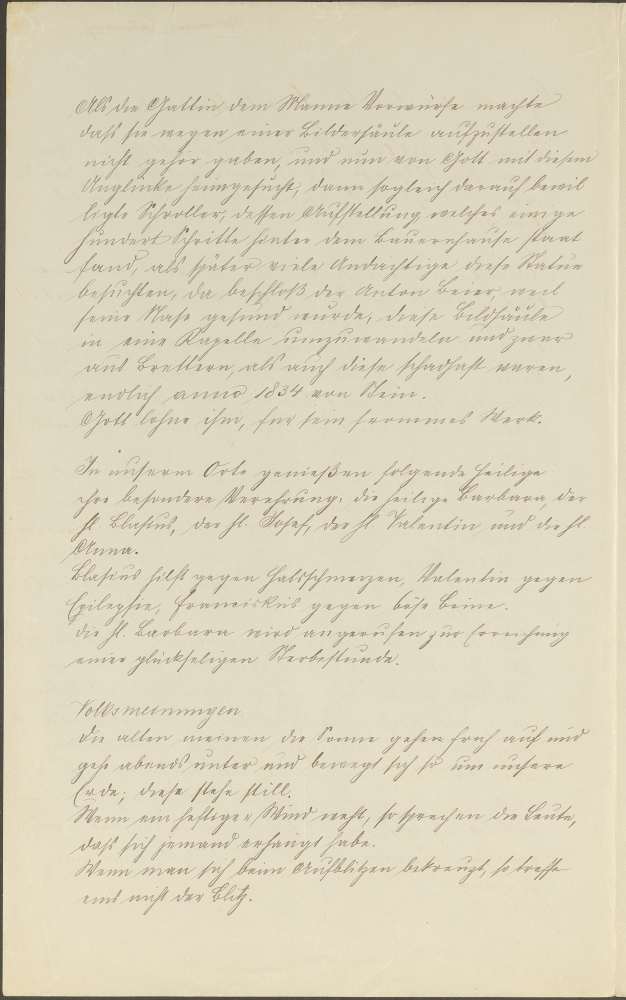 Als die Gattin dem Manne Vorwürfe machte
daß sie wegen einer Bildersäule aufzustellen
nicht gehör gaben, und nun von Gott mit diesem
Unglücke heimgesucht, dann sogleich darauf bewil
ligte Schroller, dessen Aufstellung welches einige
hundert Schritte hinter dem Bauernhause statt
fand, als später viele Andächtige diese Statue
besuchten, da beschloß der Anton Beier, weil
seine Nase gesund wurde, diese Bildsäule
in eine Kapelle umzuwandeln und zwar
aus Brettern, als auch diese schadhaft waren,
endlich anno 1834 von Stein.
Gott lohne ihm, für sein frommes Werk.
In unserm Orte genießen folgende Heilige
ihre besondere Verehrung: die heilige Barbara, der
hl. Blasius, der hl. Josef, der hl. Valentin und die hl.
Anna.
Blasius hilft gegen Halsschmerzen, Valentin gegen
Epilepsie, Franziskus gegen böse Beine.
die hl. Barbara wird angerufen zur Erreichung
einer glückseligen Sterbestunde.
Volksmeinungen
Die alten meinen die Sonne gehen früh auf und
gehe abends unter und bewegt sich so um unsere
Erde; diese stehe still.
Wenn ein heftiger Wind weht, so sprechen die Leute,
daß sich jemand erhängt habe.
Wenn man sich beim Aufblitzen bekreuzt, so treffe
eins nicht der Blitz.